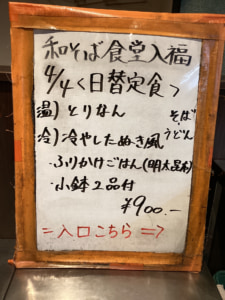 和そば食堂入福
4/4<日替定食>
温)とりなん そば
冷)冷やしたぬき風 うどん
・ふりかけごはん(明太昆布)
・小鉢2品付
¥900.-
=入口こちら=>